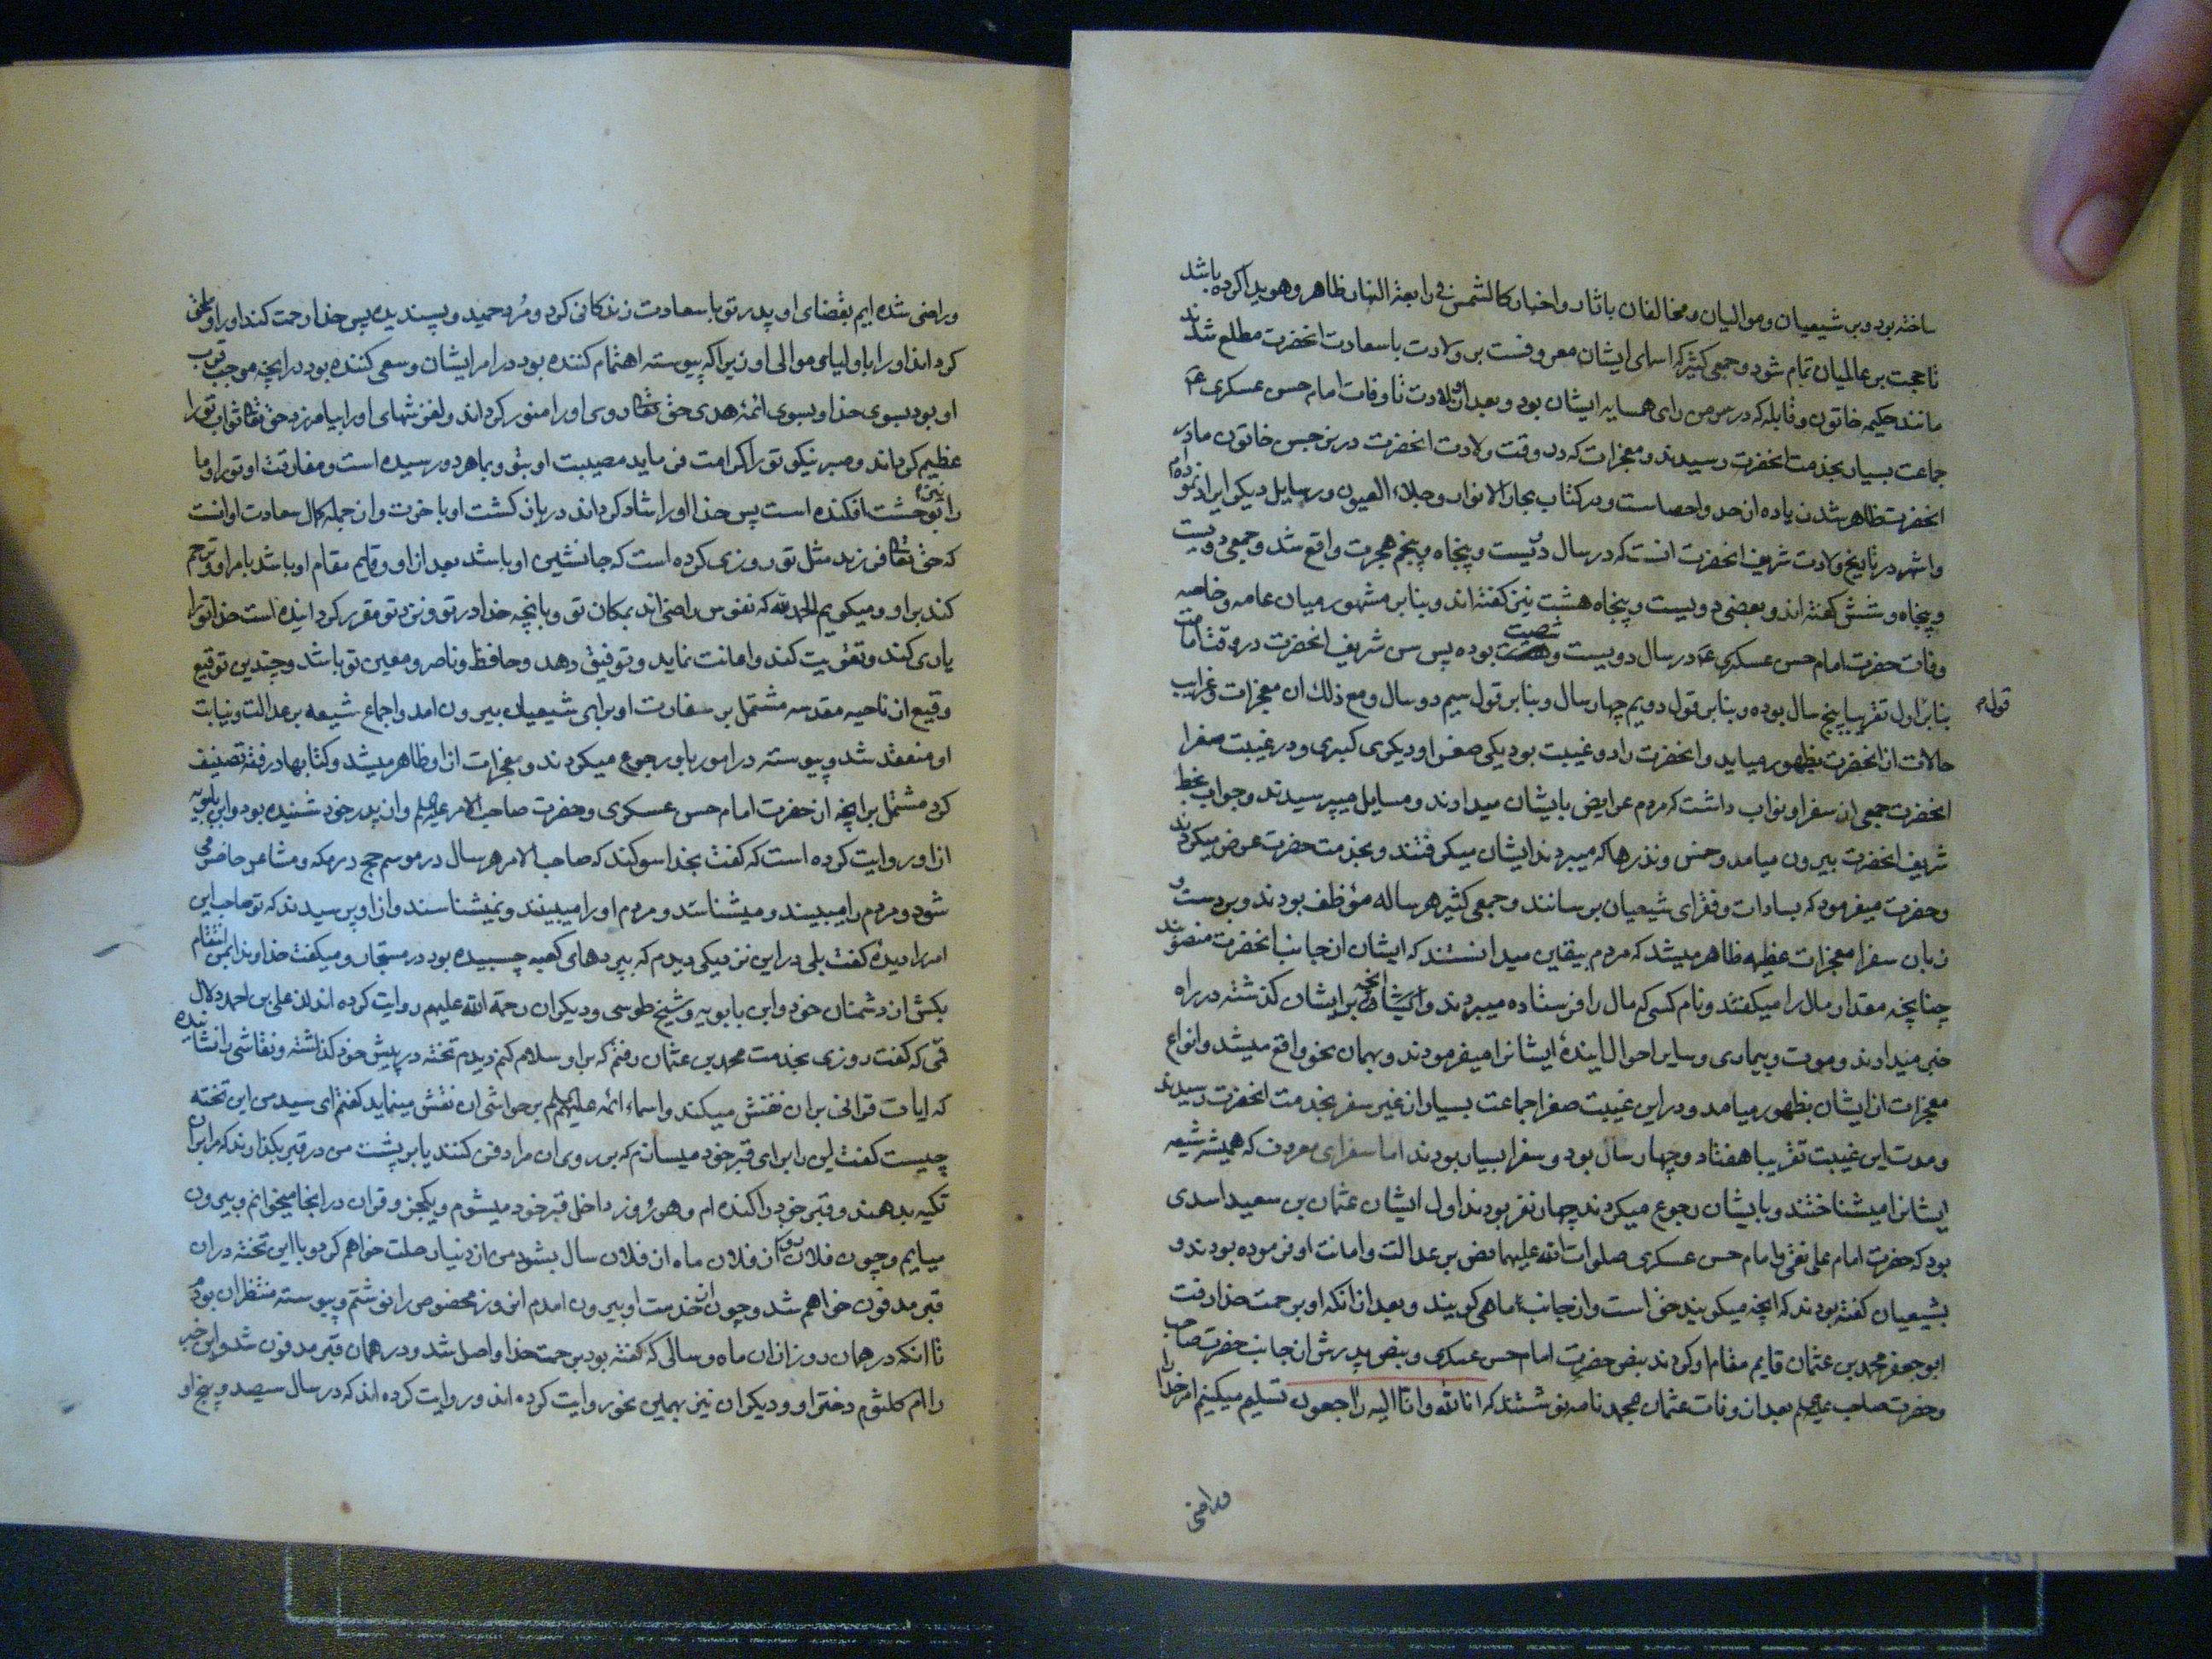 ساخته بود و بر شیعیان و موالیان و مخالفان باثار و اخبار کالشمس فی رابعة النهار ظاهر و هویدا کرده باشد
تا حجت بر عالمیان تمام شود و جمعی کثیر که اسمای ایشان معروفست بر ولادت با سعادت انحضرت مطلع شدند
مانند حکیمه خاتون و قابله که در سر من رای همسایه ایشان بود و بعد از ولادت تا وفات امام حسن عسکری ع
جماعت بسیار بخدمت انحضرت رسیدند و معجزات که در وقت ولادت انحضرت در نرجس خاتون مادر
انحضرت ظاهر شد زیاده از حد و احصاست و در کتاب بحار الانوار و جلاء العیون و رسایل دیکر ایراد نموده‌ام
و اشهر در تاریخ ولادت شریف انحضرت انست که در سال دویست و پنجاه و پنجم هجرت واقع شد و جمعی دویست
و پنجاه و شش کفته اند و بعضی دویست و پنجاه هشت نیز کفته اند و بنابر مشهور میان عامه و خاصه
وفات حضرت امام حسن عسکری ع در سال دویست و شصت بوده پس سن شریف انحضرت در وقت امامت
قول بنابر اول تقریبا پنج سال بوده و بنابر قول دویم چهار سال و بنابر قول سیم دو سال و مع ذلک ان معجزات و غرایب
حالات از انحضرت بظهور میاید و انحضرت را دو غیبت بود یکی صغرا و دیکری کبری و در غیبت صغرا
انحضرت جمعی از سفرا و نواب داشت که مردم عرایض بایشان میدادند و مسایل میپرسیدند و جواب بخط
شریف انحضرت بیرون میامد و خمس و نذرها که میبردند ایشان میکرفتند و بخدمت حضرت عرض میکردند
و حضرت میفرمود که بسادات و فقرای شیعیان برسانند و جمعی کثیر هر ساله موظف بودند و بر دست و
زبان سفرا معجزات عظیمه ظاهر میشد که مردم بیقین میدانستند که ایشان از جانب انحضرت منصوبند
چنانچه مقدار مال را میکفتند و نام کسی که مال را فرستاده میبردند و انچه بر ایشان کذشته در راه
خبر میدادند و موت و بیماری و سایر احوال اینده ایشانرا میفرمودند و بهمان نحو واقع میشد و انواع
معجزات از ایشان بظهور میامد و در این غیبت صغرا جماعت بسیار از غیر سفرا بخدمت انحضرت رسیدند
و مدت این غیبت تقریبا هفتاد و چهار سال بود و سفرا بسیار بودند اما سفرای معروف که همیشه شیعه
ایشانرا میشناختند و بایشان رجوع میکردند چهار نفر بودند اول ایشان عثمان بن سعید اسدی
بود که حضرت امام علی نقی و امام حسن عسکری صلوات الله علیهما نص بر عدالت و امانت او فرموده بودند و
بشیعیان کفته بودند که انچه میکوید حق است و از جانب ما میکوید و بعد از انکه او برحمت خدا رفت
ابو جعفر محمد بن عثمان قایم مقام او کردند بنص حضرت امام حسن عسکری و بنص پدرش از جانب حضرت صاحب
و حضرت صاحب علیه السلم بعد از وفات عثمان بمحمد نامه نوشتند که انا لله و انا الیه راجعون تسلیم میکنیم امر خدا را
وراضی
و راضی شده ایم بقضای او پدر تو با سعادت زندکانی کرد و مرد حمید و پسندیده پس خدا رحمت کند او را و ملحق
کرداند او را باولیا و موالی او زیرا که پیوسته اهتمام کننده بود در امر ایشان و سعی کننده بود در انچه موجب قرب
او بود بسوی خدا و بسوی ائمه هدی حق تعالی روی او را منور کرداند و لغزشهای او را بیامرزد حق تعالی ثواب تو را
عظیم کرداند و صبر نیکو تو را کرامت فرماید مصیبت او بتو و بما هر دو رسیده است و مفارقت او تو را و ما
را نیز بوحشت افکنده است پس خدا او را شاد کرداند در بازکشت او باخرت و از جمله کمال سعادت او انست
که حق تعالی فرزند مثل تو روزی کرده است که جانشین او باشد بعد از او و قایم مقام او باشد بامر او و ترحم
کند بر او و میکویم الحمد لله که نفوس راضی‌اند بمکان تو و بانچه خدا در تو و نزد تو مقرر کردانیده است خدا تو را
یاری کند و تقویت کند و اعانت نماید و توفیق دهد و حافظ و ناصر و معین تو باشد و چندین توقیع
وقیع از ناحیه مقدسه مشتمل بر سفارت او برای شیعیان بیرون امد و اجماع شیعه بر عدالت و نیابت
او منعقد شد و پیوسته در امور باو رجوع میکردند و معجزات از او ظاهر میشد و کتابها در فقه تصنیف
کرد مشتمل بر انچه از حضرت امام حسن عسکری و حضرت صاحب الامر علیهم السلم و از پدر خود شنیده بود و ابن بابویه
از او روایت کرده است که کفت بخدا سوکند که صاحب الامر هر سال در موسم حج در مکه و مشاعر حاضر می
شود و مردم را میبیند و میشناسد و مردم او را میبینند و نمیشناسند و از او پرسیدند که تو صاحب این
امر را دیدهٔ کفت بلی در این نزدیکی دیدم که بپردهای کعبه چسبیده بود در مستجار و میکفت خداوندا بمن انتقام
بکش از دشمنان خود و ابن بابویه و شیخ طوسی و دیکران رحمة الله علیهم روایت کرده اند از علی بن احمد دلال
قمی که کفت روزی بخدمت محمد بن عثمان رفتم که بر او سلام کنم دیدم تخته در پیش خود کذاشته و نقاشی را نشانیده
که ایات قرانی بر ان نقش میکند و اسماء ائمه علیهم السلم بر حواشی ان نقش مینماید کفتم ای سید من این تخته
چیست کفت این را برای قبر خود میسازم که بر روی ان مرا دفن کنند یا بر پشت من در قبر بکذارند که مرا بران
تکیه بدهند و قبر خود را کنده ام و هر روز داخل قبر خود میشوم و یکجزو قران در انجا میخوانم و بیرون
میایم و چون فلان روز از فلان ماه از فلان سال بشود من از دنیا رحلت خواهم کرد و با این تخته در ان
قبر مدفون خواهم شد و چون از خدمت او بیرون امدم انروز مخصوص را نوشتم و پیوسته منتظر ان بودم
تا انکه در همان روز از ان ماه و سالی که کفته بود برحمت خدا واصل شد و در همان قبر مدفون شد و این خبر
را ام کلثوم دختر او و دیکران نیز بهمین نحو روایت کرده اند و روایت کرده اند که در سال سیصد و پنج او